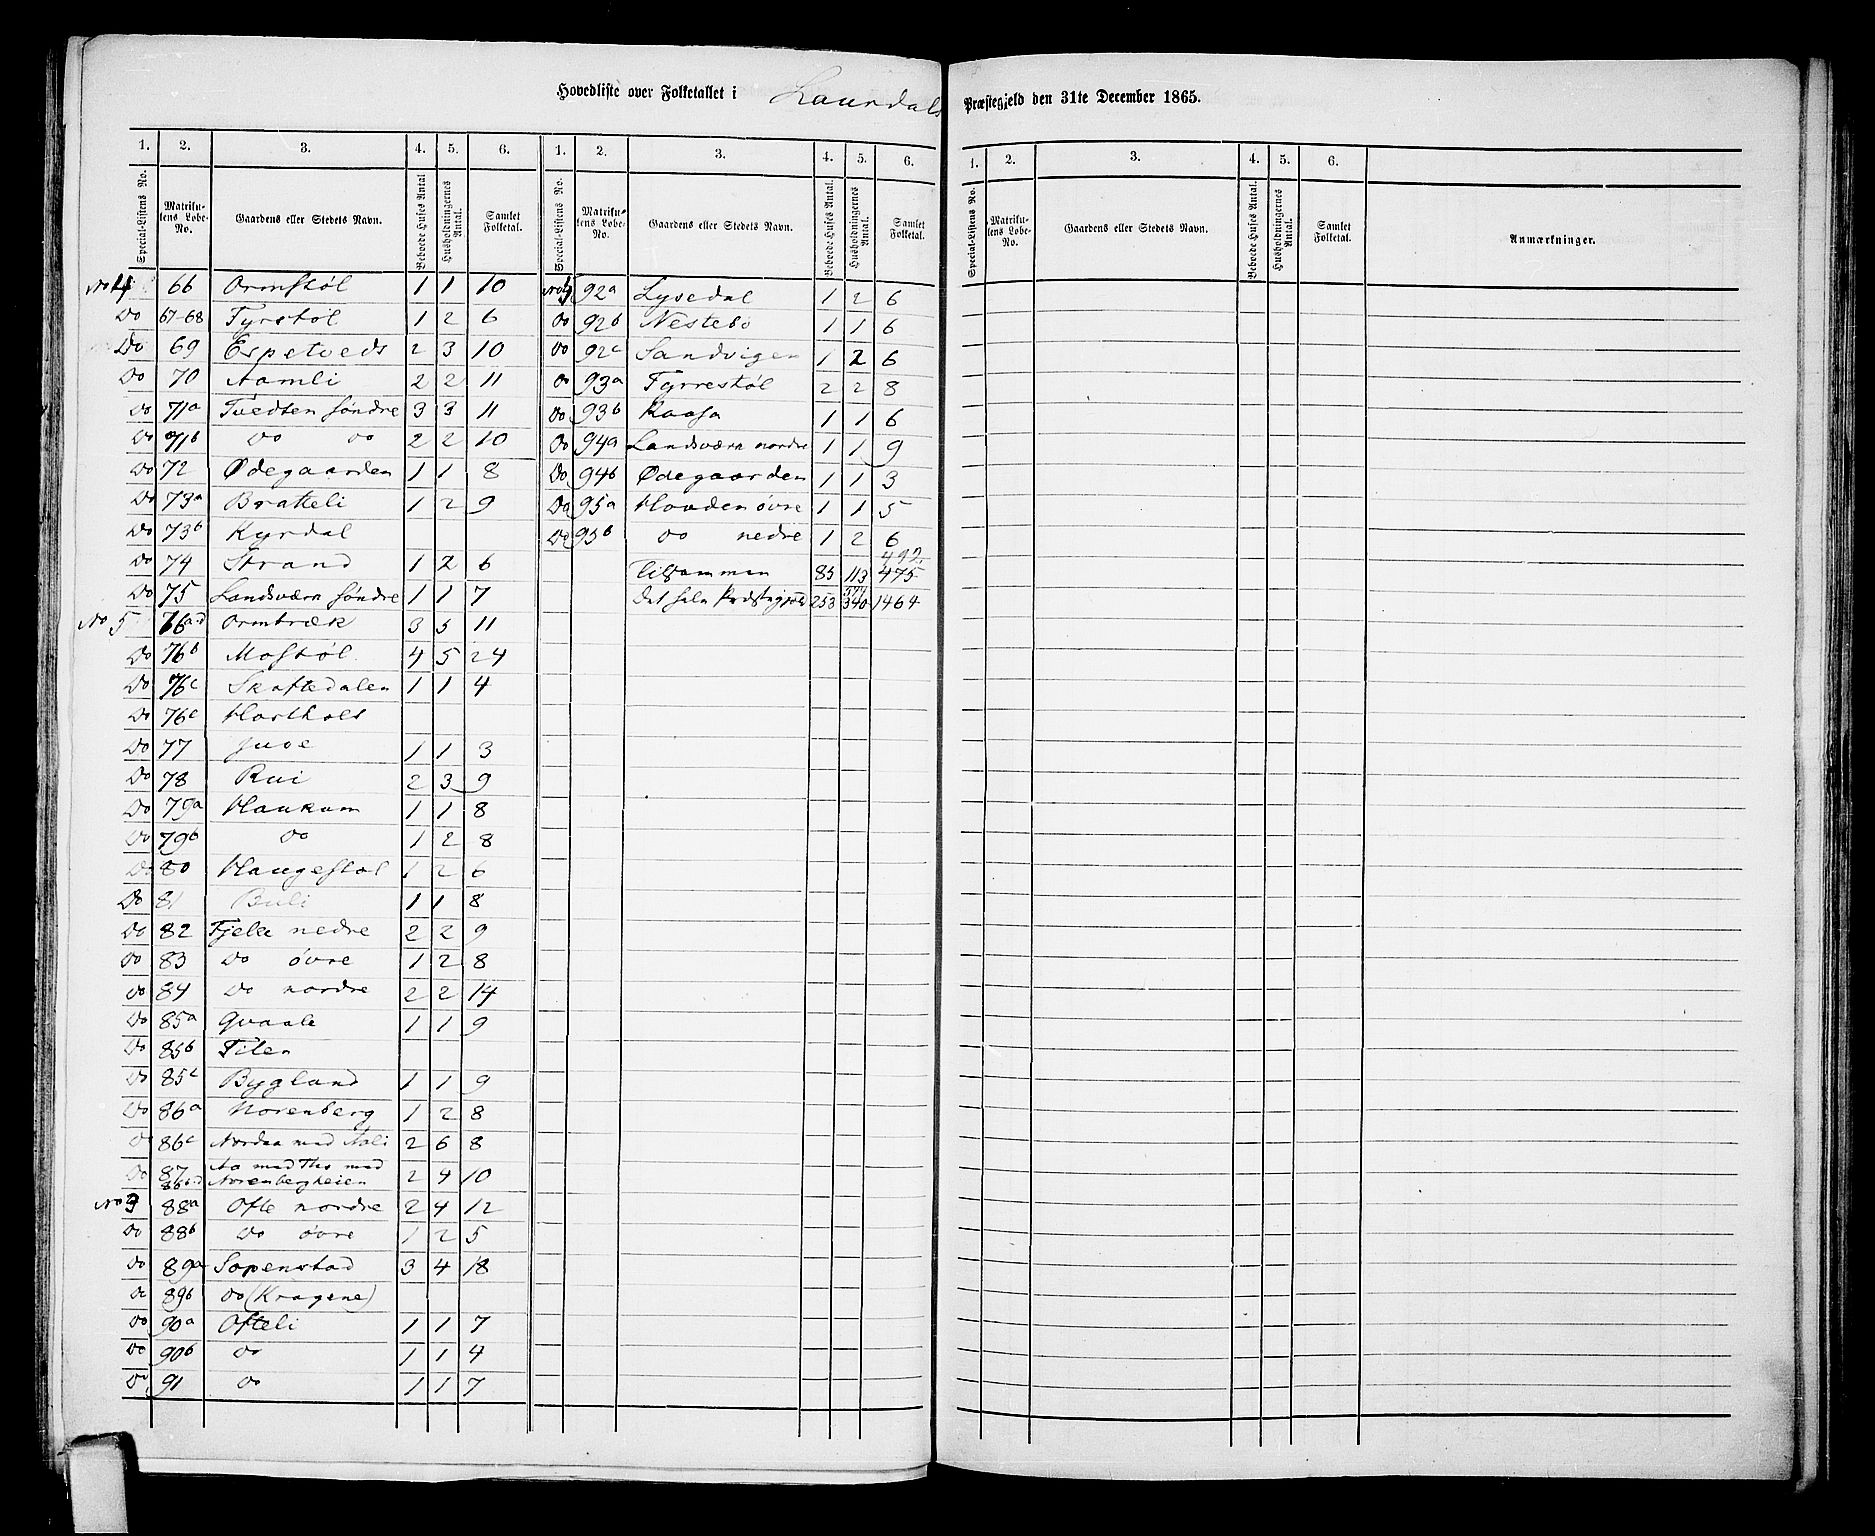 Hovedliste over Folketallet i Laurdals Præstegjeld den 31te December 1865.
1. 2. 3. 4. 5. 6. 1. 2. 3. 4. 5. 6. 1. 2. 3. 4. 5. 6.
Special-Listens No. Matrikulens Løbe-No. Gaardens eller Stedets Navn. Beboede Huses Antal Husholdningernes Antal. Samlet Folketal.
Special-Listens No. Matrikulens Løbe-No. Gaardens eller Stedets Navn. Beboede Huses Antal. Husholdningernes Antal. Samlet Folketal.
Special-Listens No. Matrikulens Løbe-No. Gaardens eller Stedets Navn. Beboede Huses Antal. Husholdningernes Antal. Samlet Folketal. Anmærkninger.
No 4 66 Ormstøl 1 1 10
Do 67-68 Tyrstøl 1 2 6
Do 69 Espetveds 2 3 10
Do 70 Aamli 2 2 11
Do 71a Tvedten søndre 3 3 11
Do 71b Do Do 2 2 10
Do 72 Ødegaarden 1 1 8
Do 73a Bratteli 1 2 9
Do 73b Kyrdal
Do 74 Strand 1 2 6
Do 75 Landsværn søndre 1 1 7
No 5 76a-d Ormtræk 3 5 11
Do 76b Mostøl 4 5 24
Do 76c Skaftedalen 1 1 4
Do 76e Hartholt
Do 77 Juve 1 1 3
Do 78 Rui 2 3 9
Do 79a Haukom 1 1 8
Do 79b Do 1 2 8
Do 80 Haugestøl 1 2 6
Do 81 Buli 1 1 8
Do 82 Fjelle nedre 2 2 9
Do 83 Do øvre 1 2 8
Do 84 Do nordre 2 2 14
Do 85a Qvaale 1 1 9
Do 85b Tilen
Do 85c Bygland 1 1 9
Do 86a Norenberg 1 2 8
Do 86c Nordaa med Aali 2 6 8
Do 87 86b-d Aa med Tho med Norenbergheien 2 4 10
No 3 88a Ofte nordre 2 4 12
Do 88b Do øvre 1 2 5
Do 89a Sopenstad 3 4 18
Do 89b Do (Kragene)
Do 90a Ofteli 1 1 7
Do 90b Do 1 1 4
Do 91 Do 1 1 7
92a Lysedal 1 2 6
Do 92b Nestebø 1 1 6
Do 92c Sandvigen 1 2 6
Do 93a Tyrrestøl 2 2 8
Do 93b Kaasa 1 1 6
Do 94a Landsværn nordre 1 1 9
Do 94b Ødegaarden 1 1 3
Do 95a Houden øvre 1 1 5
Do 95b Do nedre 1 2 6
492.
Tilsammen 85 113 475
Det hele Præstegjæld 253 340 1464